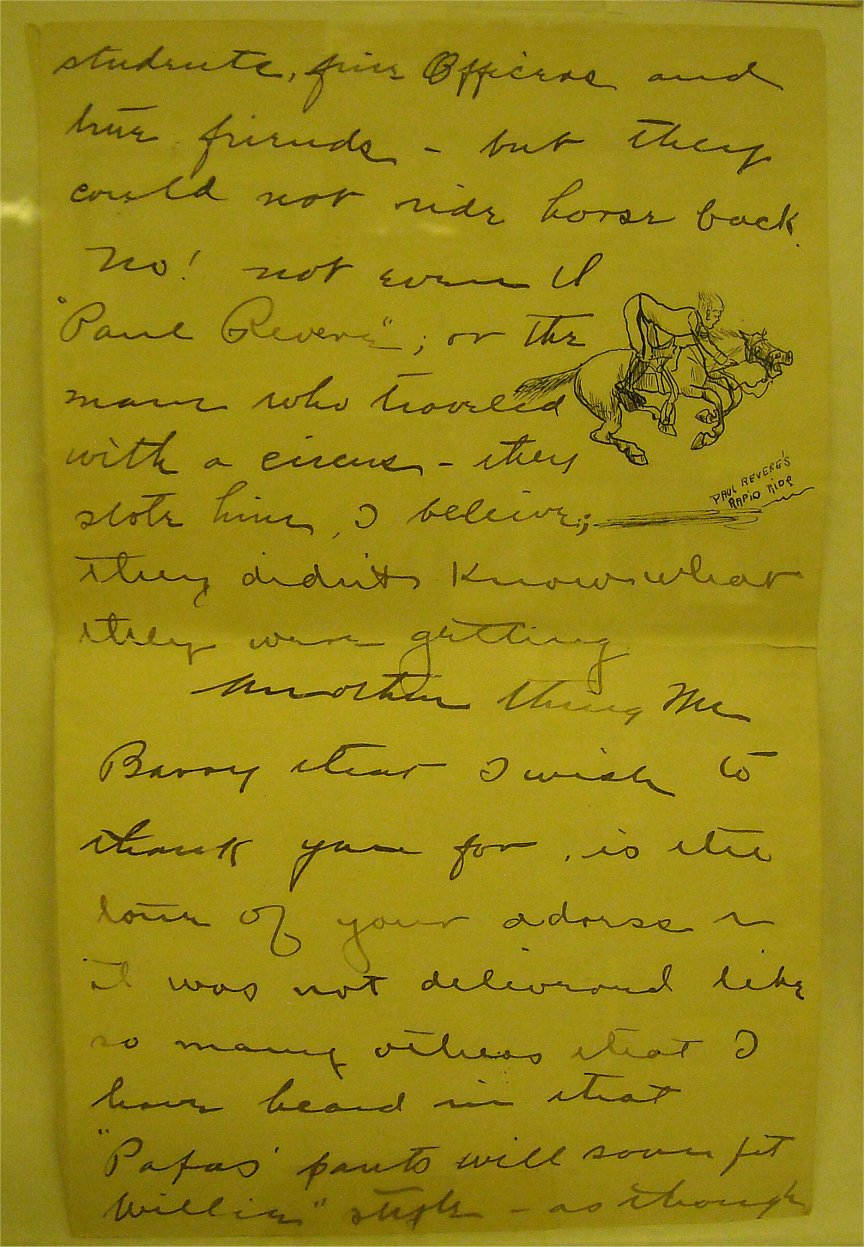 students, fine Officers and
true friends - but they
could not ride horse back.
No! not even if
"Paul Revere"; or the
man who traveled
with a circus - they
stole him, I beleive;
PAUL REVERE'S
RAPID RIDE
they didn't know what
they were getting
Another thing Mr
Barry that I wish to
thank you for, is the
tone of your adress
it was not delivered like
so many others that I
have heard in that
"Papas' pants will soon fit
Willie" style - as though